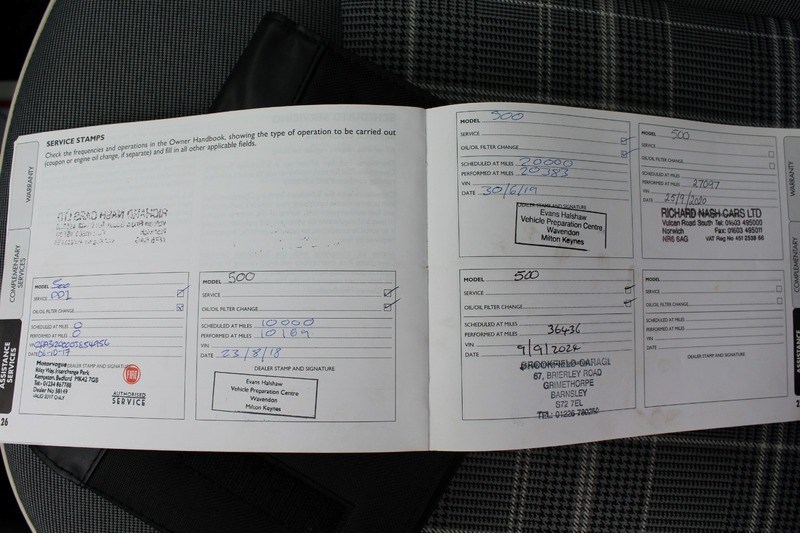 SERVICE STAMPS
Check the frequencies and operations in the Owner Handbook, showing the type of operation to be carried out
(coupon or engine oil change, if separate) and fill in all other applicable fields.
WARRANTY
COMPLEMENTARY
SERVICES
ASSISTANCE
SERVICES
26
MODEL 500
SERVICE PDI
OIL/OIL FILTER CHANGE
SCHEDULED AT MILES 0
PERFORMED AT MILES 0
VIN
DATE 06-10-17
DEALER STAMP AND SIGNATURE
Motorvogue
Riley Way, Interchange Park
Kempston, Bedford MK42 7GB
Tel: 01234 867788
Dealer No 58149
VALID 2017 ONLY
FIAT
AUTHORISED
SERVICE
MODEL 500
SERVICE
OIL/OIL FILTER CHANGE
SCHEDULED AT MILES 10000
PERFORMED AT MILES 10169
VIN
DATE 23/8/18
DEALER STAMP AND SIGNATURE
Evans Halshaw
Vehicle Preparation Centre
Wavendon
Milton Keynes
MODEL 500
SERVICE
OIL/OIL FILTER CHANGE
SCHEDULED AT MILES 20000
PERFORMED AT MILES 20383
VIN
DATE 30/6/19
DEALER STAMP AND SIGNATURE
Evans Halshaw
Vehicle Preparation Centre
Wavendon
Milton Keynes
MODEL 500
SERVICE
OIL/OIL FILTER CHANGE
SCHEDULED AT MILES
PERFORMED AT MILES 27097
VIN
DATE 25/9/2020
RICHARD NASH CARS LTD
Vulcan Road South Tel: 01603 495000
Norwich Fax: 01603 495011
NR6 6AG VAT Reg No 451 2538 86
MODEL 500
SERVICE
OIL/OIL FILTER CHANGE
SCHEDULED AT MILES
PERFORMED AT MILES 36436
VIN
DATE 9/9/2024
BROOKFIELD GARAGE
67, BRIERLEY ROAD
GRIMETHORPE
BARNSLEY
S72 7EL
TEL: 01226 780280
MODEL
SERVICE
OIL/OIL FILTER CHANGE
SCHEDULED AT MILES
PERFORMED AT MILES
VIN
DATE
DEALER STAMP AND SIGNATURE